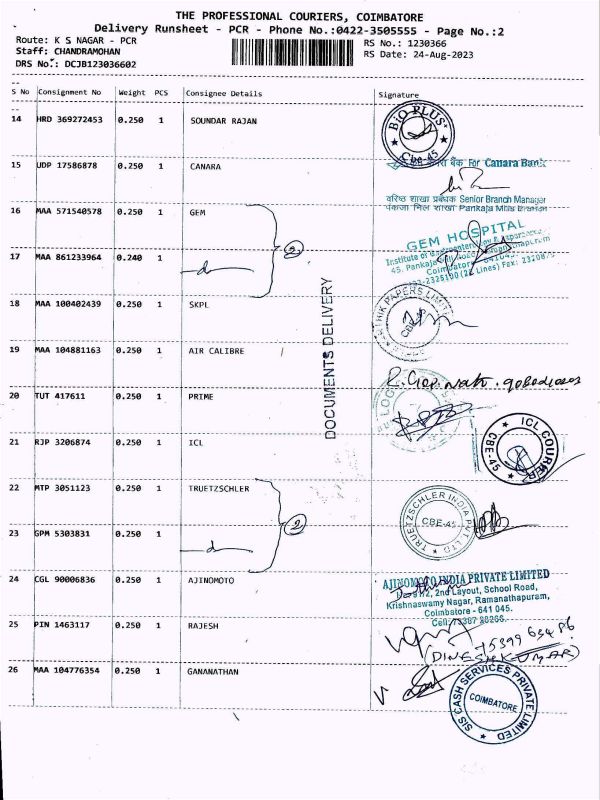 THE PROFESSIONAL COURIERS, COIMBATORE
Delivery Runsheet - PCR - Phone No.:0422-3505555 - Page No.:2
Route: K S NAGAR - PCR
Staff: CHANDRAMOHAN
DRS No.: DCJB123036602
RS No.: 1230366
RS Date: 24-Aug-2023
S No Consignment No Weight PCS Consignee Details Signature
14 HRD 369272453 0.250 1 SOUNDAR RAJAN
BIO PLUS
Cbe-45
15 UDP 17586878 0.250 1 CANARA
बैंक For Canara Bank
वरिष्ठ शाखा प्रबंधक Senior Branch Manager
पंकजा मिल शाखा Pankaja Mills Branch
16 MAA 571540578 0.250 1 GEM
2
GEM HOSPITAL
Institute of
45, Pankaja
Coimbatore
Lines) Fax:
17 MAA 861233964 0.240 1
18 MAA 100402439 0.250 1 SKPL
PAPERS LIMITED
DOCUMENTS DELIVERY
19 MAA 104881163 0.250 1 AIR CALIBRE
20 TUT 417611 0.250 1 PRIME
21 RJP 3206874 0.250 1 ICL
ICL COURIER
CBE-45
22 MTP 3051123 0.250 1 TRUETZSCHLER
2
TRUETZSCHLER INDIA PVT LTD
CBE-45
23 GPM 5303831 0.250 1
24 CGL 90006836 0.250 1 AJINOMOTO
AJINOMOTO INDIA PRIVATE LIMITED
2nd Layout, School Road,
Krishnaswamy Nagar, Ramanathapuram,
Coimbatore - 641 045.
Cell:
25 PIN 1463117 0.250 1 RAJESH
(DINESHKUMAR)
26 MAA 104776354 0.250 1 GANANATHAN
SIS CASH SERVICES PRIVATE LIMITED
COIMBATORE